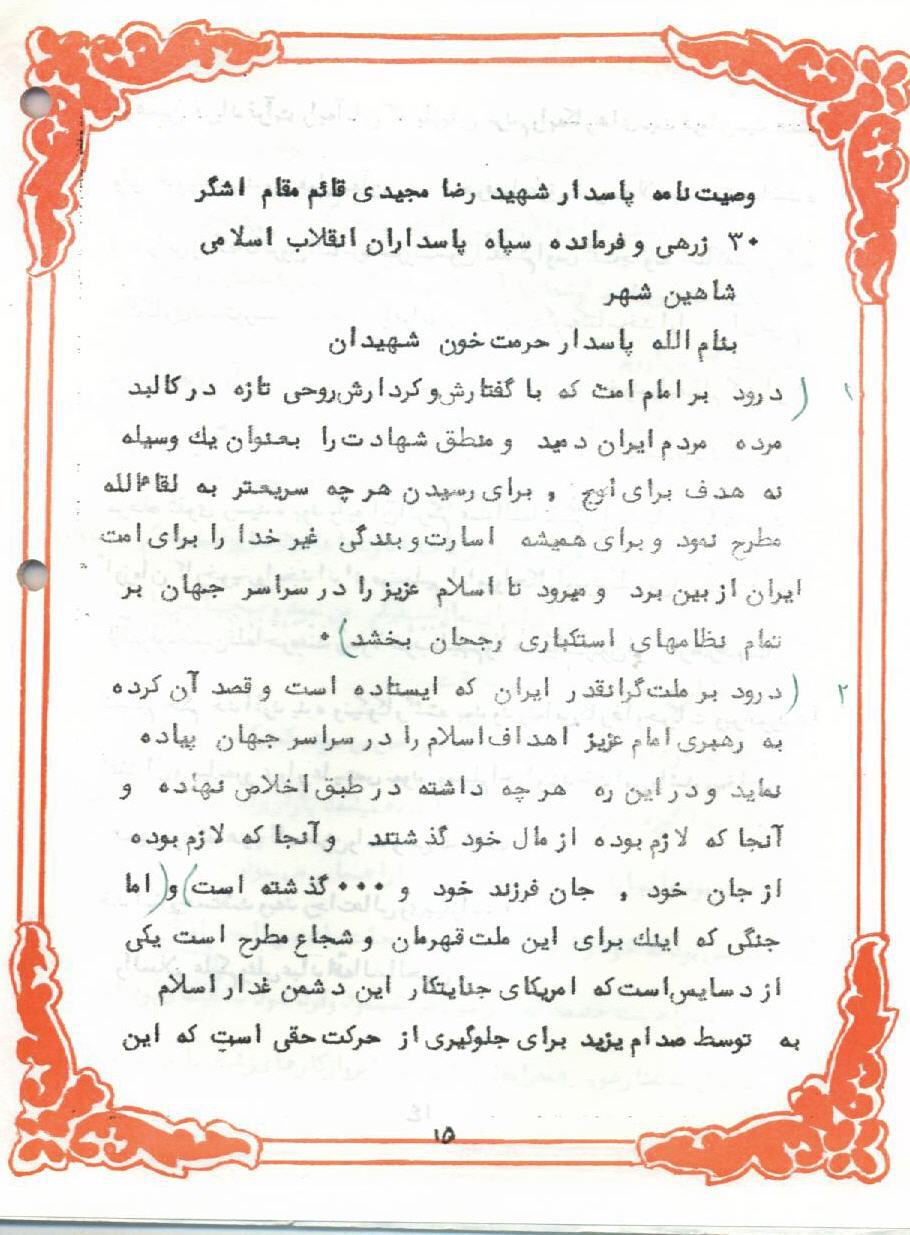 وصیت نامه پاسدار شهید رضا مجیدی قائم مقام اشگر
۳۰ زرهی و فرمانده سپاه پاسداران انقلاب اسلامی
شاهین شهر
بنام الله پاسدار حرمت خون شهیدان
۱ (درود بر امام امت که با گفتارش و کردارش روحی تازه در کالبد
مرده مردم ایران دمید و منطق شهادت را بعنوان یک وسیله
نه هدف برای اوج , برای رسیدن هر چه سریعتر به لقاءالله
مطرح نمود و برای همیشه اسارت و بندگی غیر خدا را برای امت
ایران از بین برد و میرود تا اسلام عزیز را در سراسر جهان بر
تمام نظامهای استکباری رجحان بخشد) .
۲ (درود بر ملت گرانقدر ایران که ایستاده است و قصد آن کرده
به رهبری امام عزیز اهداف اسلام را در سراسر جهان پیاده
نماید و در این ره هر چه داشته در طبق اخلاص نهاده و
آنجا که لازم بوده از مال خود گذشتند و آنجا که لازم بوده
از جان خود , جان فرزند خود و ۰۰۰ گذشته است) و (اما
جنگی که اینک برای این ملت قهرمان و شجاع مطرح است یکی
از دسایس است که امریکای جنایتکار این دشمن غدار اسلام
به توسط صدام یزید برای جلوگیری از حرکت حقی است که این
۱۵